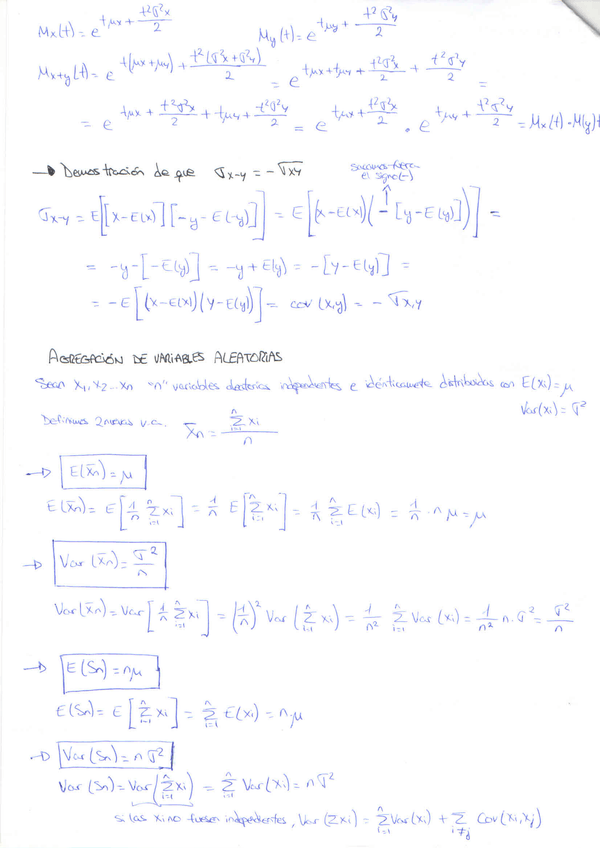 Mx(t) = e^(tμx + t²σ²x/2)   My(t) = e^(tμy + t²σ²y/2)
Mx+y(t) = e^(t(μx+μy) + t²(σ²x+σ²y)/2) = e^(tμx+tμy + t²σ²x/2 + t²σ²y/2) =
= e^(tμx + t²σ²x/2 + tμy + t²σ²y/2) = e^(tμx + t²σ²x/2) · e^(tμy + t²σ²y/2) = Mx(t)·M(y)t
→ Demostración de que σx-y = -σxy
sacamos fuera
el signo(-)
σx-y = E[[x-E(x)][-y-E(-y)]] = E[(x-E(x))(-[y-E(y)])] =
= -y-[-E(y)] = -y+E(y) = -[y-E(y)] =
= -E[(x-E(x))(y-E(y))] = cov(x,y) = -σx,y
AGREGACIÓN DE VARIABLES ALEATORIAS
Sean x1, x2...xn "n" variables aleatorias independientes e idénticamente distribuidas con E(xi)=μ
Var(xi)=σ²
Definimos 2 nuevas v.a. x̄n = Σ(i=1, n) xi / n
→ E(x̄n)=μ
E(x̄n) = E[1/n Σ(i=1, n) xi] = 1/n E[Σ(i=1, n) xi] = 1/n Σ(i=1, n) E(xi) = 1/n · n μ = μ
→ Var(x̄n) = σ²/n
Var(x̄n) = Var[1/n Σ(i=1, n) xi] = (1/n)² Var(Σ(i=1, n) xi) = 1/n² Σ(i=1, n) Var(xi) = 1/n² n·σ² = σ²/n
→ E(Sn)=n·μ
E(Sn) = E[Σ(i=1, n) xi] = Σ(i=1, n) E(xi) = n·μ
→ Var(Sn)=nσ²
Var(Sn) = Var(Σ(i=1, n) xi) = Σ(i=1, n) Var(xi) = nσ²
si las xi no fuesen independientes, Var(Σxi) = Σ(i=1, n) Var(xi) + Σ(i≠j) Cov(xi,xj)